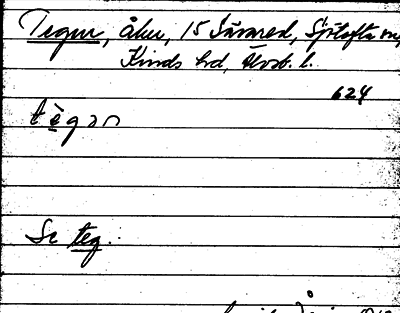 Tegen, åker, 15 Sävared, Sjötofta sn,
Kinds hd, Älvsb. l.
624
tègən
Se teg.